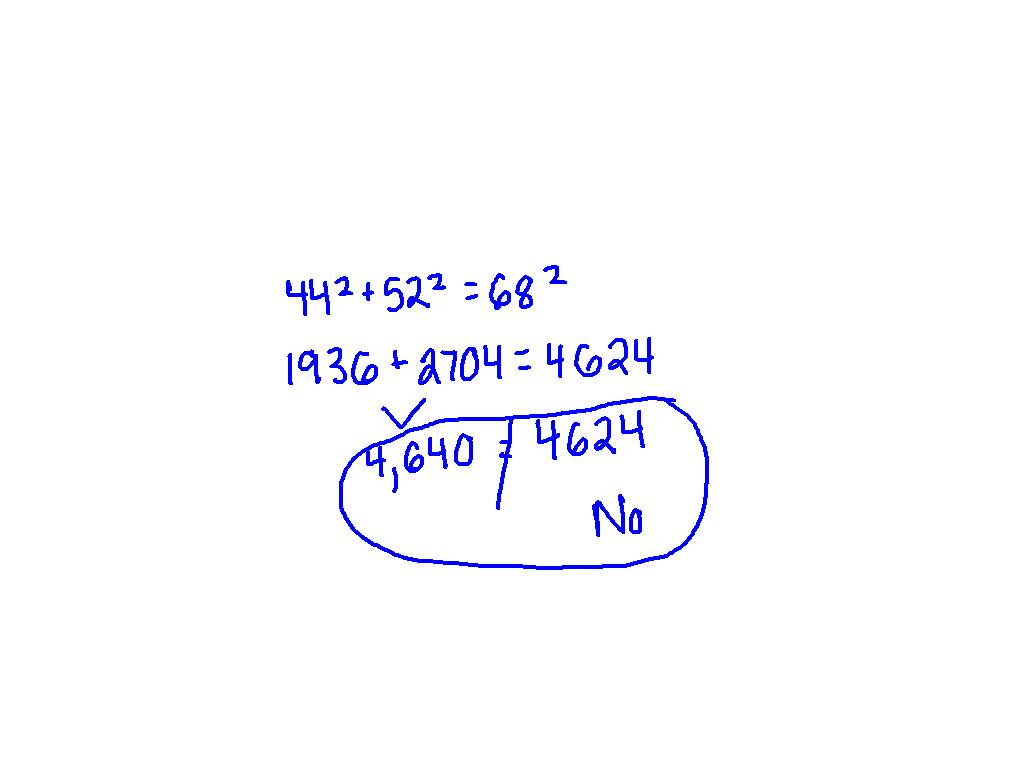 44² + 52² = 68²
1936 + 2704 = 4624
4,640 ≠ 4624
No